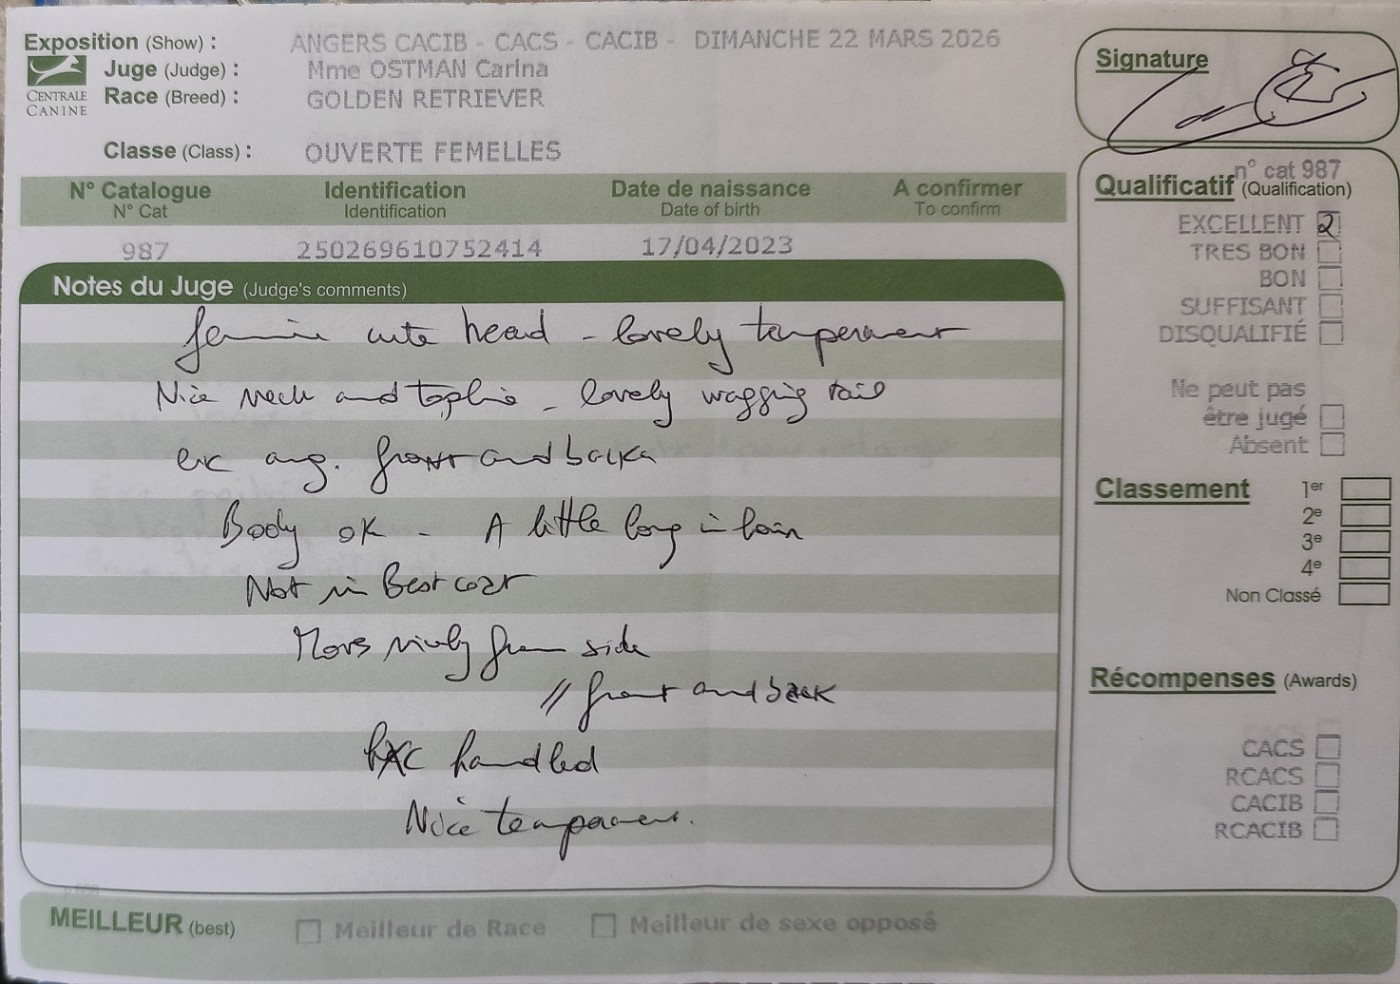 Exposition (Show) : ANGERS CACIB - CACS - CACIB - DIMANCHE 22 MARS 2026
CENTRALE CANINE
Juge (Judge) : Mme OSTMAN Carina
Race (Breed) : GOLDEN RETRIEVER
Classe (Class) : OUVERTE FEMELLES
N° Catalogue Identification Date de naissance A confirmer
N° Cat Identification Date of birth To confirm
987 250269610752414 17/04/2023
Notes du Juge (Judge's comments)
cute head - lovely temperament
Nice neck and topline - lovely wagging tail
exc ang. front and back
Body ok - A little long in loin
Not in Best coat
Movs nicely from side
// front and back
handled
Nice temperament.
MEILLEUR (best) Meilleur de Race Meilleur de sexe opposé
Signature
n° cat 987
Qualificatif (Qualification)
EXCELLENT 2
TRES BON
BON
SUFFISANT
DISQUALIFIÉ
Ne peut pas
être jugé
Absent
Classement 1er
2e
3e
4e
Non Classé
Récompenses (Awards)
CACS
RCACS
CACIB
RCACIB